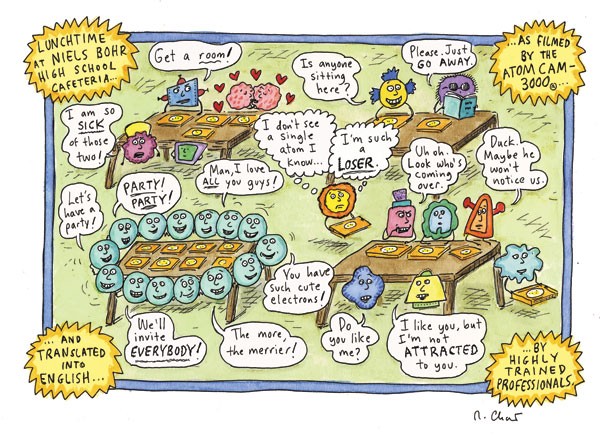 LUNCHTIME
AT NIELS BOHR
HIGH SCHOOL
CAFETERIA...
...AS FILMED
BY THE
ATOM CAM-
3000®...
Get a room!
Is anyone
sitting
here?
Please. Just
GO AWAY.
I am so
SICK
of those
two!
I don't see
a single
atom I
know...
I'm such
a
LOSER.
Uh oh.
Look who's
coming
over.
Duck.
Maybe he
won't
notice us.
Man, I love
ALL you guys!
PARTY!
PARTY!
Let's
have a
party!
You have
such cute
electrons!
We'll
invite
EVERYBODY!
The more,
the merrier!
Do
you like
me?
I like you, but
I'm not
ATTRACTED
to you.
...AND
TRANSLATED
INTO
ENGLISH...
...BY
HIGHLY
TRAINED
PROFESSIONALS.
R. Chast